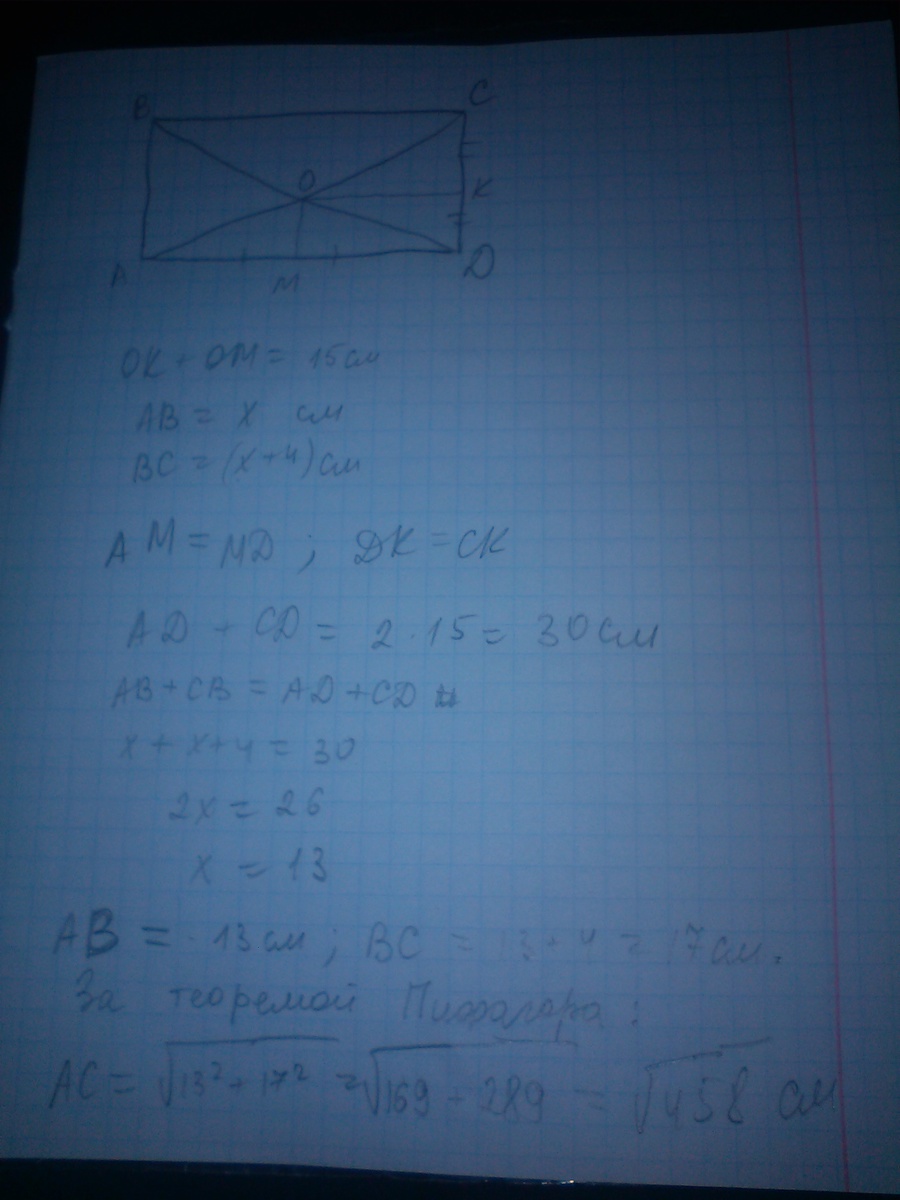 B C
O
K
A M D
OK + OM = 15 см
AB = x см
BC = (x+4) см
AM = MD ; DK = CK
AD + CD = 2 · 15 = 30 см
AB + CB = AD + CD
x + x + 4 = 30
2x = 26
x = 13
AB = 13 см ; BC = 13 + 4 = 17 см.
За теоремой Пифагора :
AC = √13² + 17² = √169 + 289 = √458 см